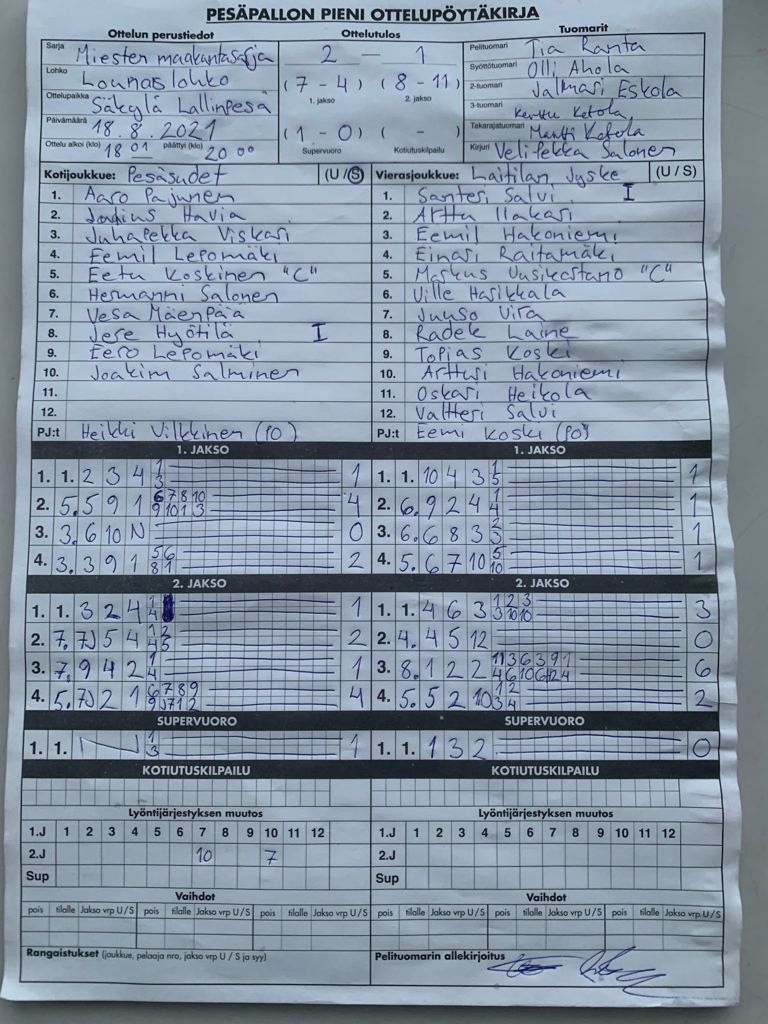 PESÄPALLON PIENI OTTELUPÖYTÄKIRJA
Ottelun perustiedot
Sarja Miesten maakuntasarja
Lohko Lounaislohko
Ottelupaikka Säkylä Lallinpesä
Päivämäärä 18.8.2021
Ottelu alkoi (klo) 18 01 päättyi (klo) 20 00
Ottelutulos
2 - 1
(7 - 4) (8 - 11)
1. jakso 2. jakso
(1 - 0) ( - )
Supervuoro Kotiutuskilpailu
Tuomarit
Pelituomari Tia Ranta
Syöttötuomari Olli Ahola
2-tuomari Jalmari Eskola
3-tuomari Kerttu Ketola
Takarajatuomari Martti Ketola
Kirjuri Velipekka Salonen
Kotijoukkue: Pesäsudet (U / S)
1. Aaro Pajunen
2. Joonius Havia
3. Juhapekka Viskari
4. Eemil Lepomäki
5. Eetu Koskinen "C"
6. Hermanni Salonen
7. Vesa Mäenpää
8. Jere Hyötilä I
9. Eero Lepomäki
10. Joakim Salminen
11.
12.
PJ:t Heikki Vilkkinen (PO)
Vierasjoukkue: Laitilan Jyske (U / S)
1. Santeri Salvi I
2. Arttu Ilakari
3. Eemil Hakoniemi
4. Einari Raitamäki
5. Markus Uusikartano "C"
6. Ville Harikkala
7. Juuso Vira
8. Radek Laine
9. Topias Koski
10. Artturi Hakoniemi
11. Oskari Heikola
12. Valtteri Salvi
PJ:t Eemi Koski (PO)
1. JAKSO
1. 1. 2 3 4 1 3 1
2. 5. 5 9 1 6 7 8 10 9 10 1 3 4
3. 3. 6 10 N 0
4. 3. 3 9 1 5 6 8 1 2
1. JAKSO
1. 1. 10 4 3 1 5 1
2. 6. 9 2 4 1 4 1
3. 6. 6 8 3 2 3 1
4. 5. 6 7 10 5 10 1
2. JAKSO
1. 1. 3 2 4 1 4 1
2. 7. 7J 5 4 1 2 4 5 2
3. 7. 9 4 2 1 4 1
4. 5. 7J 2 1 6 7 8 9 9 J7 1 2 4
2. JAKSO
1. 1. 4 6 3 1 2 3 3 10 10 3
2. 4. 4 5 12 0
3. 8. 1 2 2 11 3 6 3 9 1 4 6 10 6 12 4 6
4. 5. 5 2 10 1 2 3 4 2
SUPERVUORO
1. 1. 1 3 1
SUPERVUORO
1. 1. 1 3 2 0
KOTIUTUSKILPAILU
KOTIUTUSKILPAILU
Lyöntijärjestyksen muutos
1.J 1 2 3 4 5 6 7 8 9 10 11 12
2.J 10 7
Sup
Lyöntijärjestyksen muutos
1.J 1 2 3 4 5 6 7 8 9 10 11 12
2.J
Sup
Vaihdot
pois tilalle Jakso vrp U / S pois tilalle Jakso vrp U / S pois tilalle Jakso vrp U / S
Vaihdot
pois tilalle Jakso vrp U / S pois tilalle Jakso vrp U / S pois tilalle Jakso vrp U / S
Rangaistukset (joukkue, pelaaja nro, jakso vrp U / S ja syy)
Pelituomarin allekirjoitus